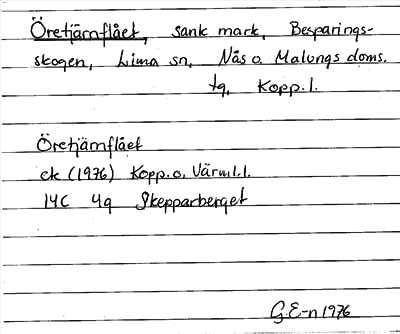 Öretjärnflået, sank mark, Besparings-
skogen, Lima sn, Nås o. Malungs doms.
tg, Kopp. l.
Öretjärnflået
ek (1976) Kopp. o. Värml. l.
14C 4g Skepparberget
G.E-n 1976